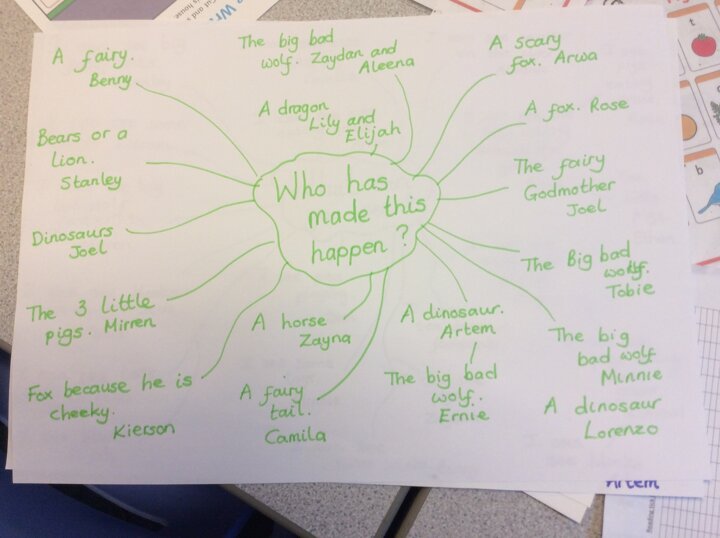 A fairy.
Benny
The big bad
wolf. Zaydan and
Aleena
A scary
fox. Arwa
A dragon
Lily and
Elijah
A fox. Rose
Bears or a
lion.
Stanley
Who has
made this
happen?
The fairy
Godmother
Joel
Dinosaurs
Joel
The Big bad
wolf.
Tobie
The 3 little
pigs. Mirren
A horse
Zayna
A dinosaur.
Artem
The big
bad wolf
Minnie
Fox because he is
cheeky.
Kierson
A fairy
tail.
Camila
The big bad
wolf.
Ernie
A dinosaur
Lorenzo
Artem
t
b